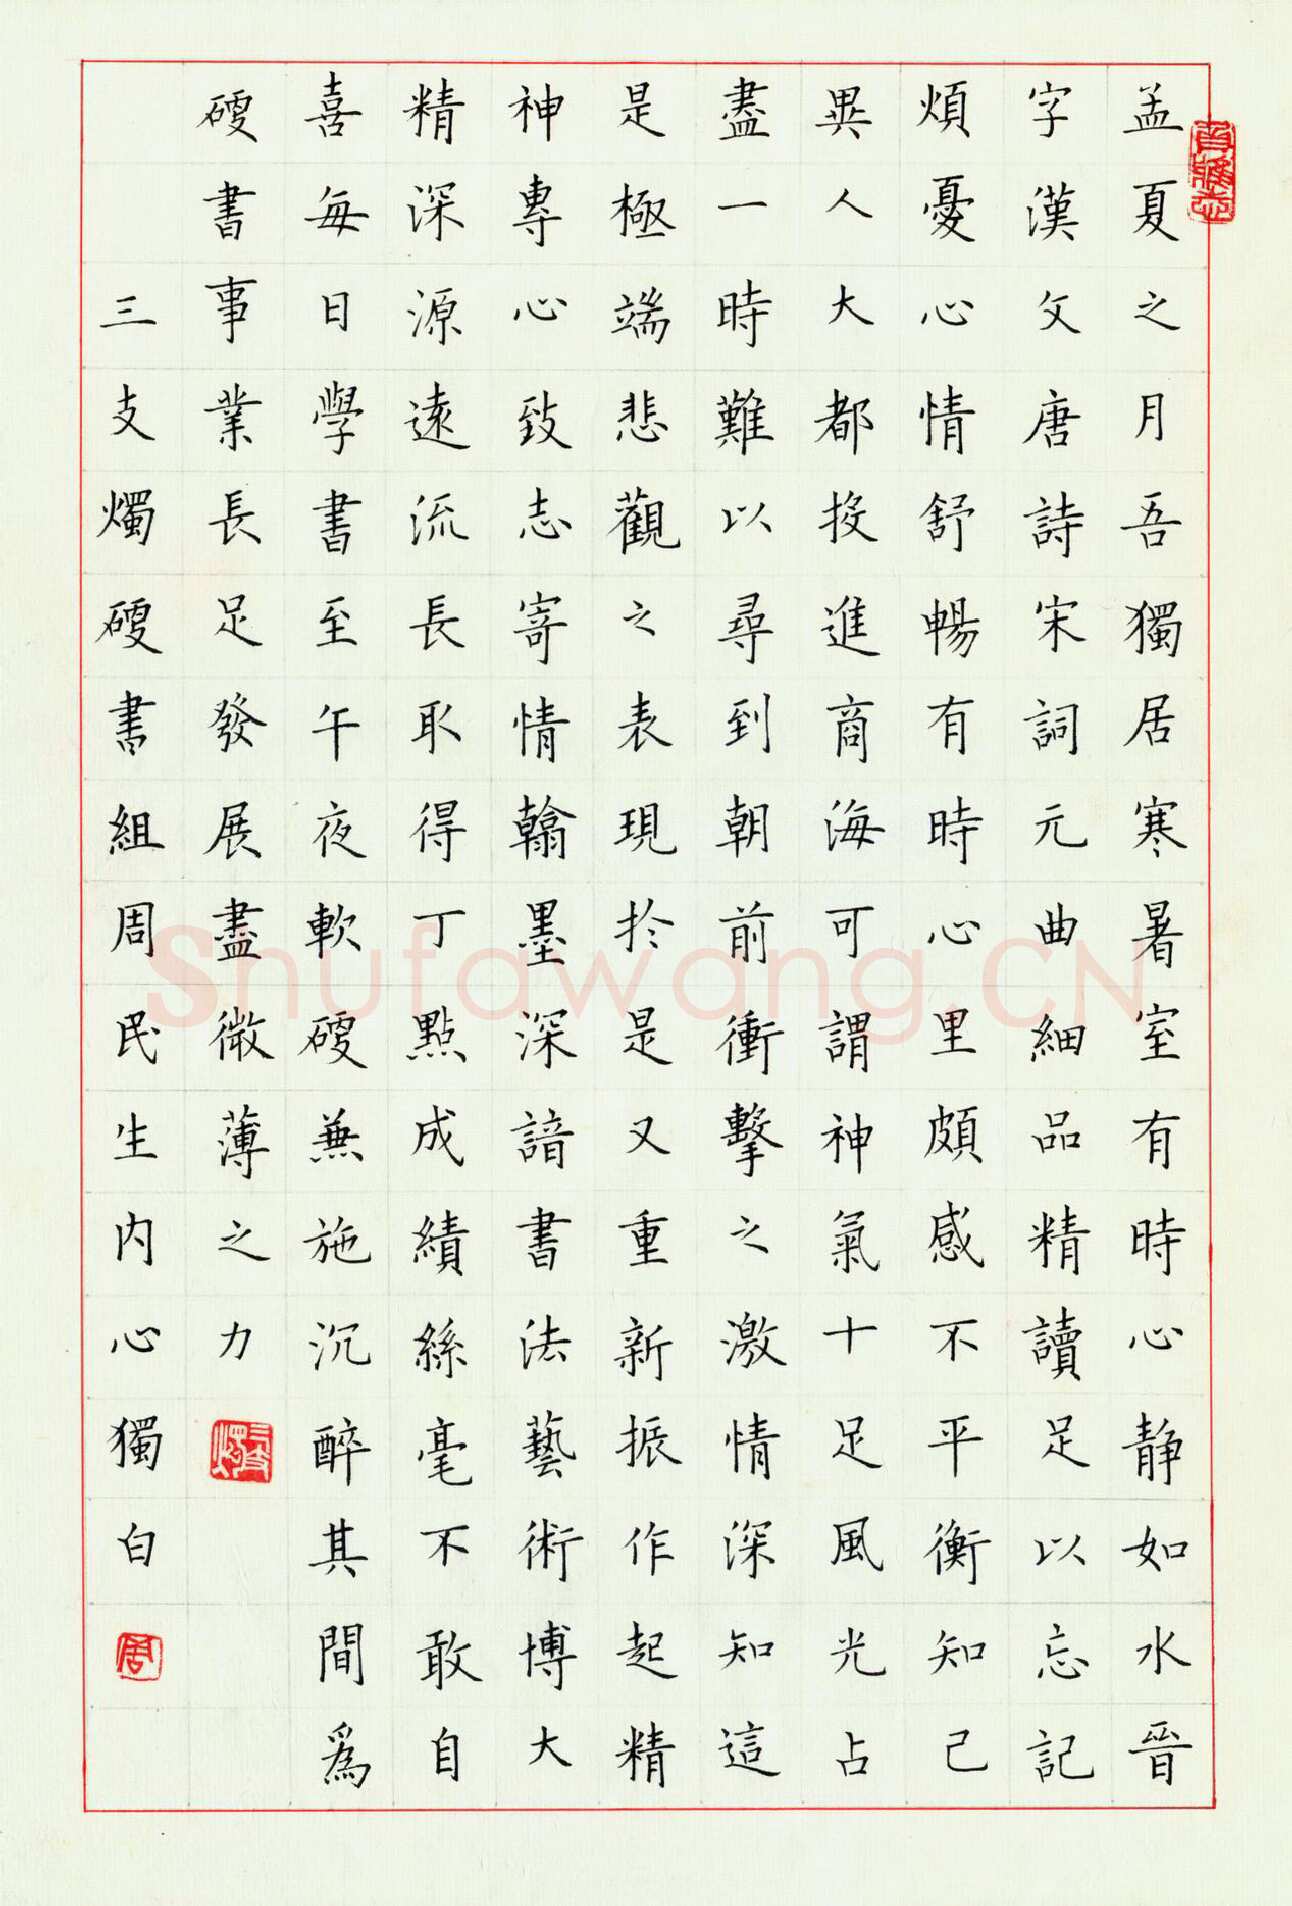 孟夏之月吾獨居寒暑室有時心静如水晉
字漢文唐詩宋詞元曲細品精讀足以忘記
煩憂心情舒暢有時心里頗感不平衡知己
異人大都投進商海可謂神氣十足風光占
盡一時難以尋到朝前衝擊之激情深知這
是極端悲觀之表現於是又重新振作起精
神專心致志寄情翰墨深諳書法藝術博大
精深源遠流長取得丁點成績絲毫不敢自
喜每日學書至午夜軟硬兼施沉醉其間爲
硬書事業長足發展盡微薄之力
三支燭
三支燭硬書組周民生内心獨白
周
Shufawang.CN